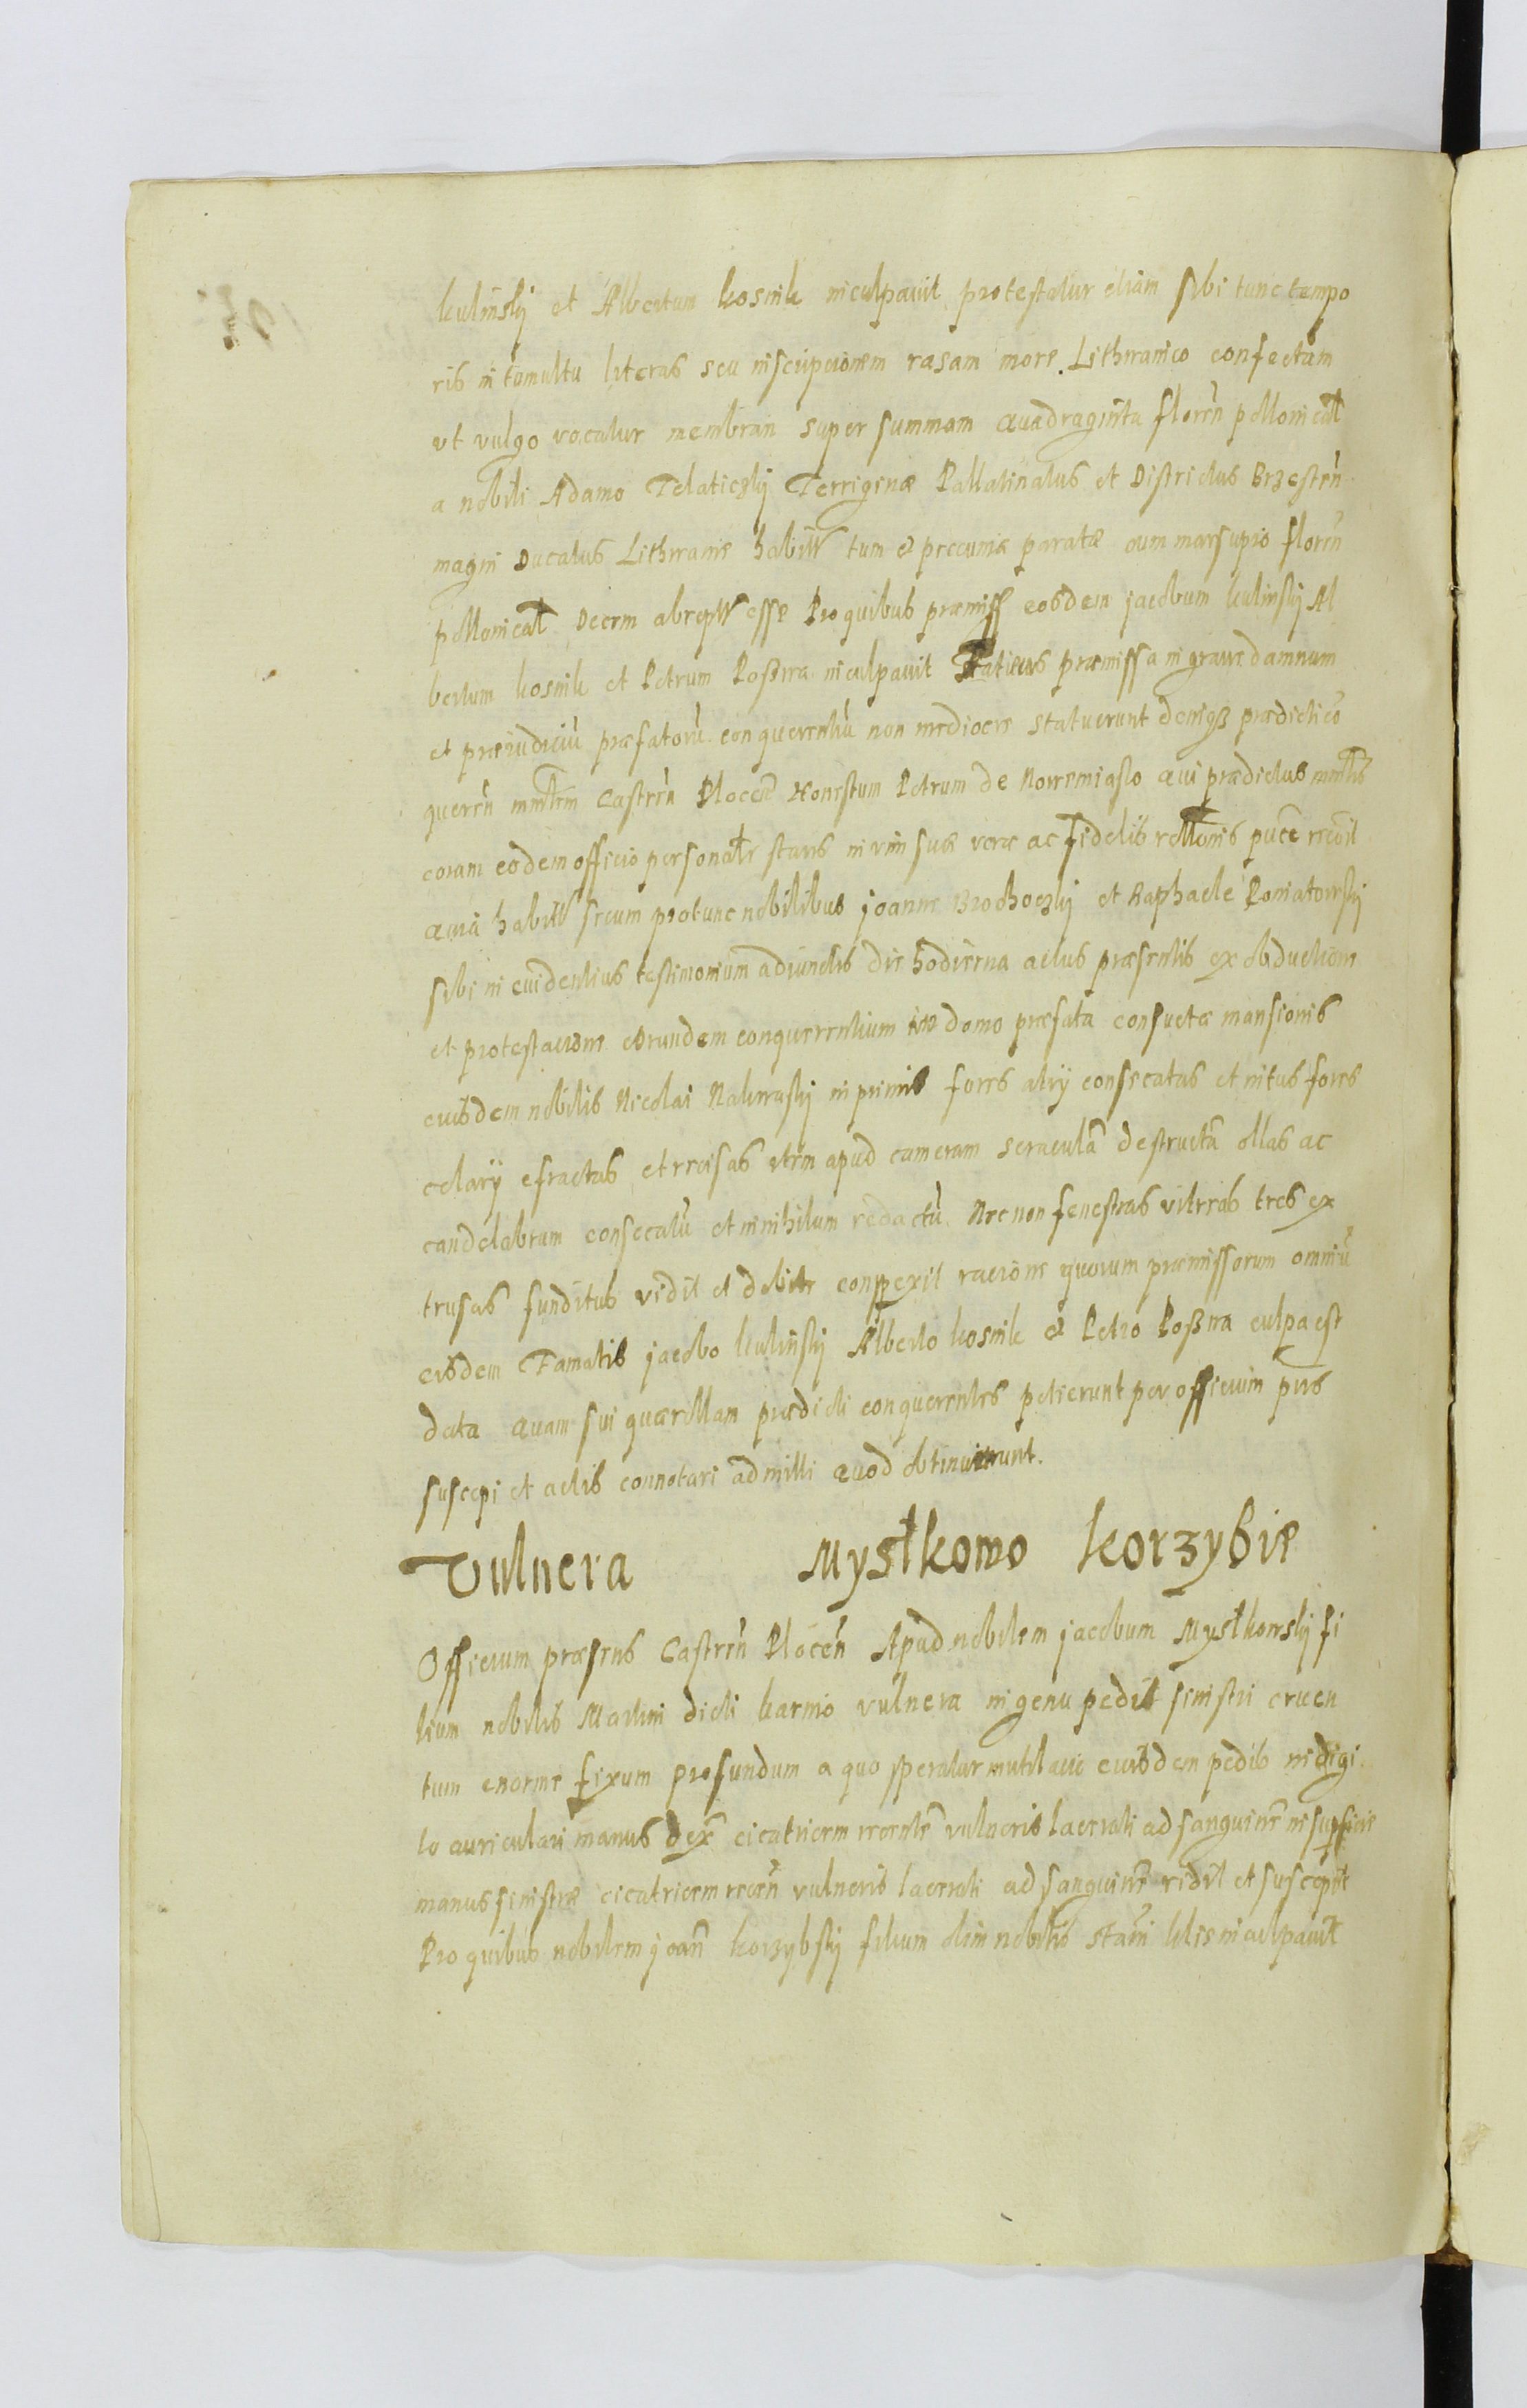 kulinskij et Albertum kosnik inculpavit protestatur etiam sibi tunc tempo
ris in tumultu literas seu inscriptionem rasam more Lithwanico confectam
vt vulgo vocatur membran super summam quadraginta floren̄ pollonical̄
a nobili Adamo Telaticzkij Terrigenæ Pallatinatus et Districtus Brzesten̄
magni Ducatus Lithwaniæ habitt tum et pecuniæ paratæ cum marsupio floren̄
pollonical̄ Decem abreptt esse Pro quibus præmiss eosdem jacobum kulinskij Al
bertum kosnik et Petrum Poßwa inculpavit præmissa in grave damnum
et præiudiciū præfatorū conquerentiū non mediocre statuerunt deniqȝ prædicti co
queren̄ minl̄rem Castren̄ Plocen̄ Honestum Petrum de Nowemiasto qui prædictus minl̄r
coram eodem officio personalr̄ stans in vim suæ veræ ac fidelis rell̄onis pūce recōit
quia habitt secum protunc nobilibus joanne Brochoczkij et Raphaele Poniatowskij
sibi in euidentius testimonium adiunctis die hodierna actus præsentis ex obductione
et protestacione eorundem conquerentium in domo præfata consuetæ mansionis
eiusdem nobilis Nicolai Nakwaskij in primis fores consecatas et intus fores
celarij efractas et recisas item apud cameram seraculā destructā ollas ac
candelabrum consecatū et in nihilum redactū. Nec non fenestras vitreas tres ex
trusas funditus vidit et debite conspexit racione quorum præmissorum omniū
eisdem Famatis jacobo kulinskij Alberto kosnik et Petro Poßwa culpa est
data Quam sui quærellam prædicti conquerentes petierunt per officium pns
suscepi et actis connotari admitti Quod obtinuerunt.
Vulnera Mystkowo korzybie
Officium præsens Castren̄ Plocen̄ Apud nobilem jacobum Mystkowskij fi
lium nobilis Martini dicti karnio vulnera in genu pedis sinistri cruen
tum enorme fixum profundum a quo speratur mutilacio eiusdem pedis in digi
to auriculari manus dex̄ cicatricem recentē vulneris lacerati ad sanguinē in supficie
manus sinistræ cicatricem recen̄ vulneris lacerati ad sanguinē vidit et suscepit
Pro quibus nobilem joan̄ korzybskij filium olim nobilis Stan̄i inculpavit